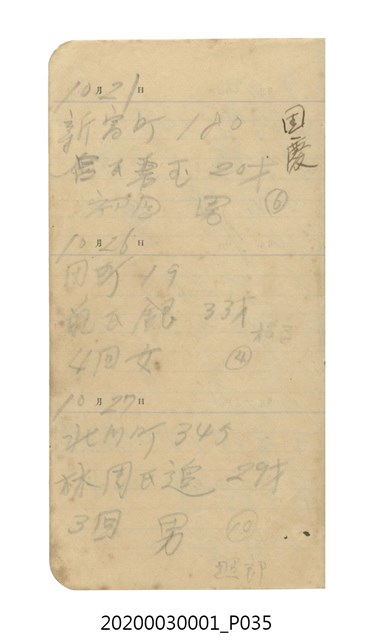 10月21日
新富町 180
国慶
氏壽玉 20才
初回 男 ⑥
10月26日
田町 19
氏銀 33才
4回女 ④
10月27日
北門町 345
林周氏追 29才
3回 男 ⑩
20200030001_P035